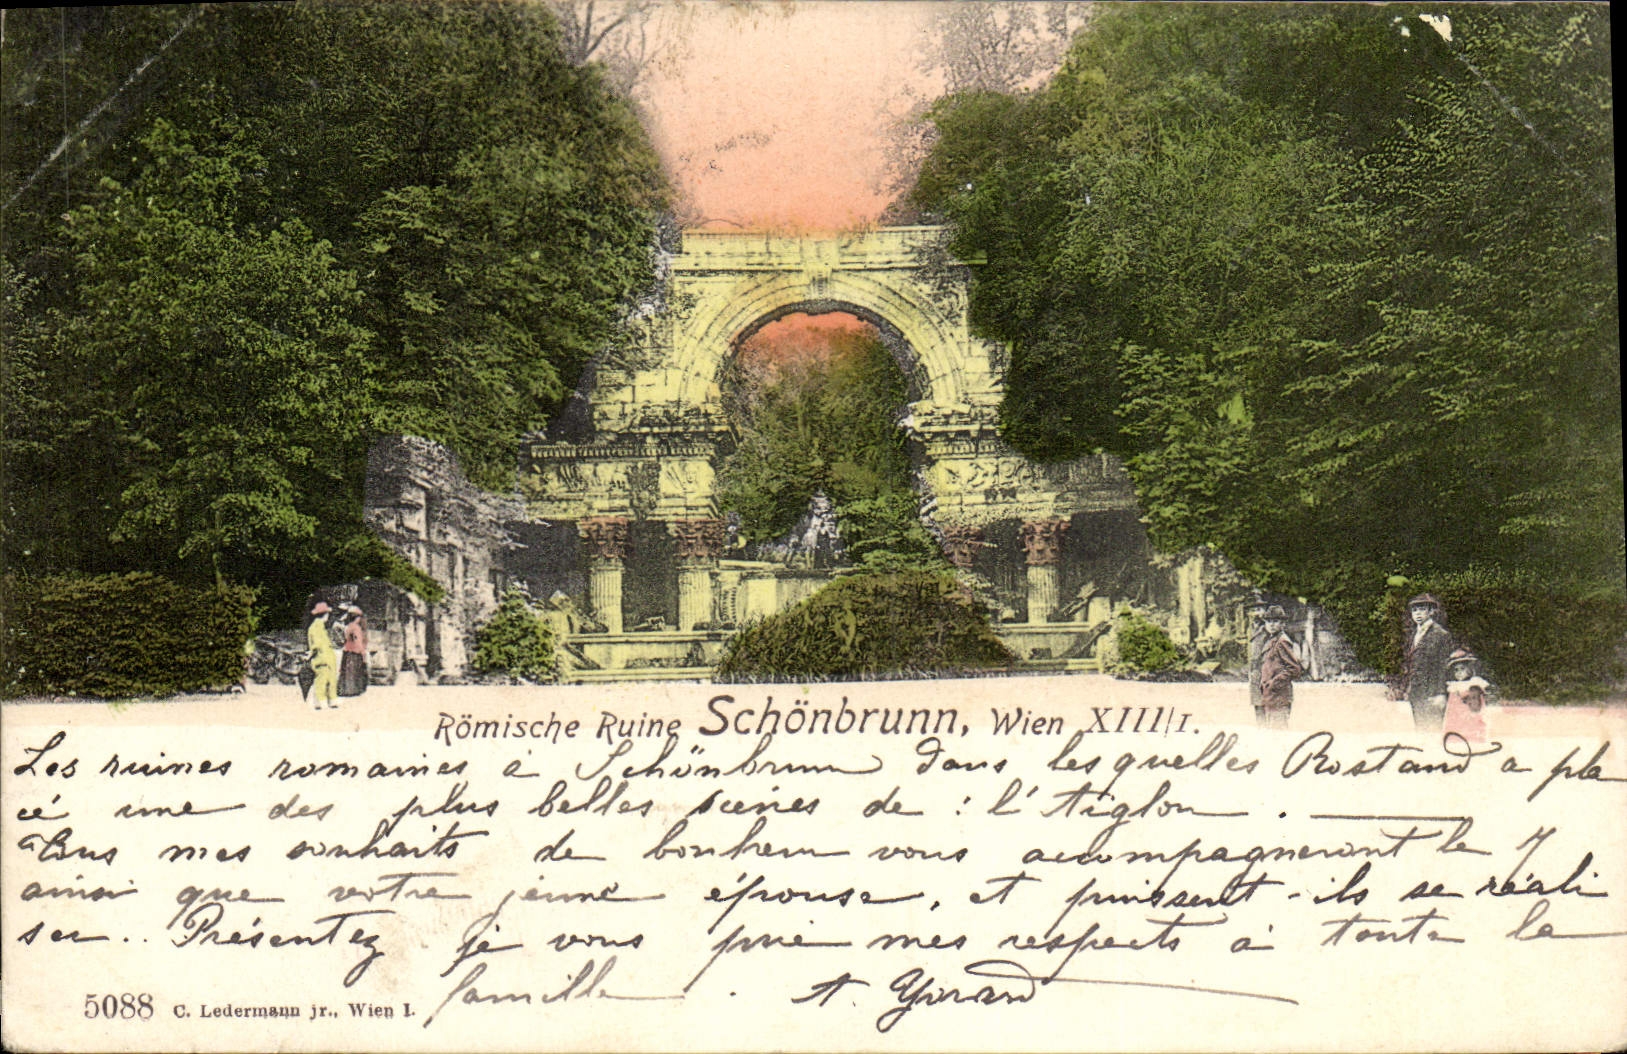 Römische Ruine Schönbrunn, Wien XIII/1.
Les ruines romaines à Schönbrunn dans lesquelles Rostand a pla
cé une des plus belles scènes de : l'Aiglon .
Tous mes souhaits de bonheur vous accompagneront le 7
ainsi que votre jeune épouse, et puissent-ils se réali
ser.. Présentez je vous prie mes respects à toute la
famille . A. Girard
5088 C. Ledermann jr., Wien I.